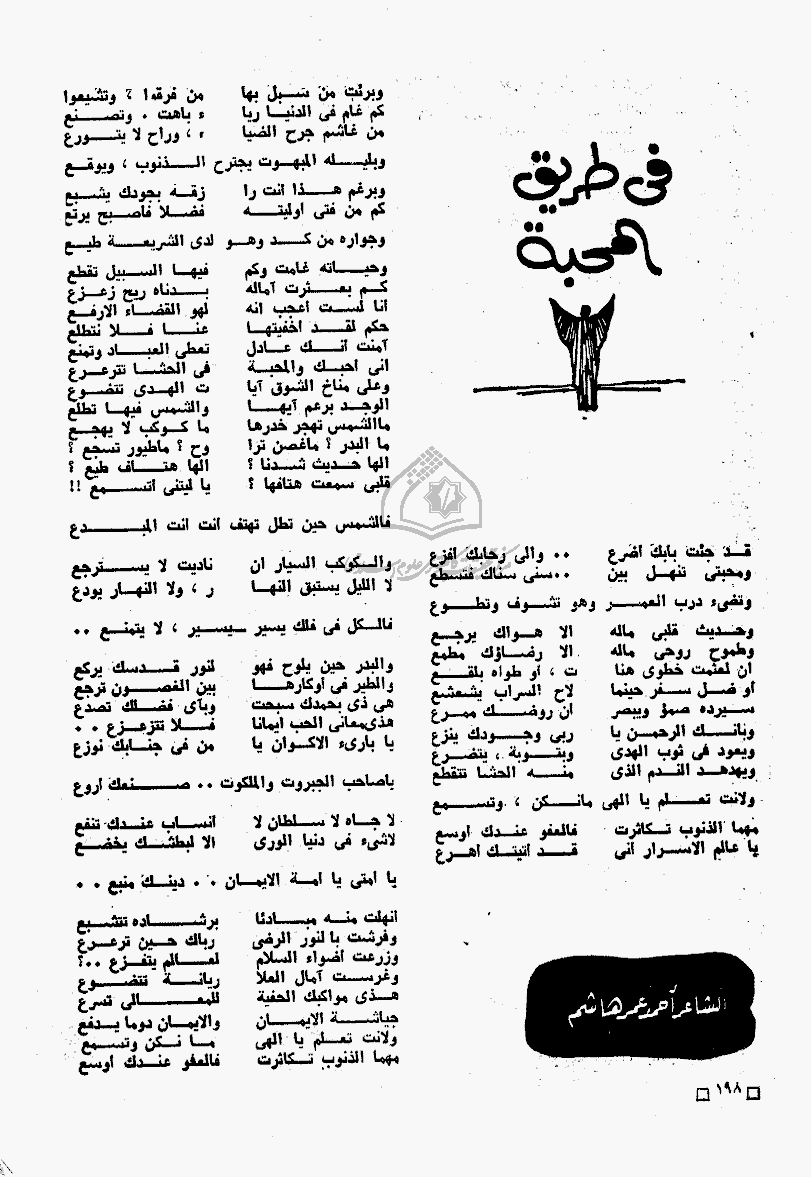 فى طريق
المحبة
قد جئت بابك اضرع .. والى رحابك افزع
ومحبتى تنهل بين ..سنى سناك فتسطع
وتضىء درب العمر وهو تشوف وتطوع
وحديث قلبى ماله الا هواك يرجع
وطموح روحى ماله الا رضاؤك مطمع
ان لعثمت خطوى هنا ت ، أو طواه بلقع
أو ضل سفر حينما لاح السراب يشعشع
سيرده صفو ويبصر ان روضك ممرع
وبانك الرحمن يا ربى وجودك ينزع
ويعود فى ثوب الهدى وبتوبة ، يتضرع
ويهدهد الندم الذى منه الحشا تتقطع
ولانت تعلم يا الهى مانكن ، وتسمع
مهما الذنوب تكاثرت فالعفو عندك أوسع
يا عالم الاسرار أنى قد اتيتك اهرع
وبرئت من سبل بها من فرقوا ؟ وتشيعوا
كم غام فى الدنيا ريا ء باهت . وتصنع
من غاشم جرح الضيا ء ، وراح لا يتورع
وبليله المبهوت يجترح الذنوب ، ويوقع
وبرغم هذا انت را زقه بجودك يشبع
كم من فتى اوليته فضلا فأصبح يرتع
وجواره من كد وهو لدى الشريعة طيع
وحياته غامت وكم فيها السبيل تقطع
كم بعثرت آماله بدناه ريح زعزع
أنا لست أعجب انه لهو القضاء الارفع
حكم لقد اخفيتها عنا فلا نتطلع
آمنت أنك عادل تعطى العباد وتمنع
انى احبك والمحبة فى الحشا تترعرع
وعلى مناخ الشوق آيا ت الهدى تتضوع
الوجد برعم آيها والشمس فيها تطلع
ماالشمس تهجر خدرها ما كوكب لا يهجع
ما البدر ؟ ماغصن ترا وح ؟ ماطيور تسجع ؟
الها حديث شدنا ؟ الها هتاف طيع ؟
قلبى سمعت هتافها ؟ يا ليتنى اتسمع !!
فالشمس حين تطل تهتف انت انت المبدع
والكوكب السيار ان ناديت لا يسترجع
لا الليل يستبق النها ر ، ولا النهار يودع
فالكل فى فلك يسير يسير ، لا يتمنع ..
والبدر حين يلوح فهو لنور قدسك يركع
والطير فى أوكارها بين الغصون ترجع
هى ذى بحمدك سبحت وبآى فضلك تصدع
هذى معانى الحب ايمانا فلا تتزعزع ..
يا بارىء الاكوان يا من فى جنابك نوزع
ياصاحب الجبروت والملكوت .. صنعك أروع
لا جاه لا سلطان لا انساب عندك تنفع
لاشىء فى دنيا الورى الا لبطشك يخضع
يا امتى يا امة الايمان .. دينك منبع ..
انهلت منه مبادئا برشاده تتشبع
وفرشت بالنور الرضى رباك حين ترعرع
وزرعت اضواء السلام لعالم يتفزع ..؟
وغرست آمال العلا ريانة تتضوع
هذى مواكبك الحفية للمعالى تسرع
جياشة الايمان والايمان دوما يدفع
ولانت تعلم يا الهى ما نكن وتسمع
مهما الذنوب تكاثرت فالعفو عندك أوسع
الشاعر أحمد عمر هاشم
١٩٨